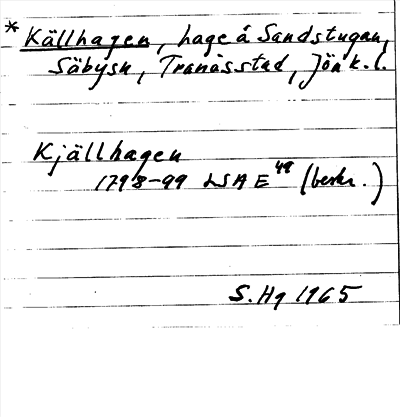 * Källhagen, hage å Sandstugan,
Säbysn, Tranåsstad, Jönk.l.
Kjällhagen
1798-99 LSA E 49 (beskr.)
S. Hg 1965